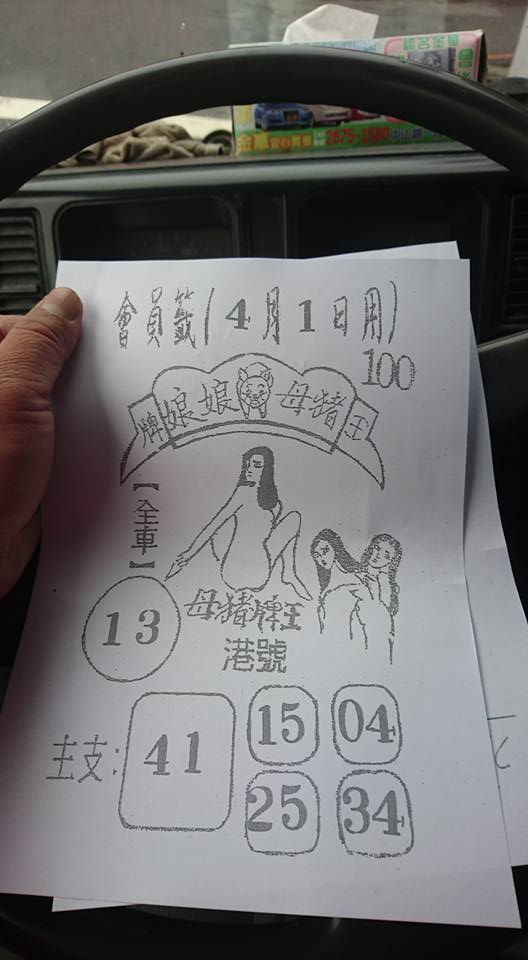 金車
2675-1580 中山路
會員籤(4月1日用)
100
牌娘娘母豬王
【全車】
13
母豬牌王
港號
主支:
41
15
04
25
34